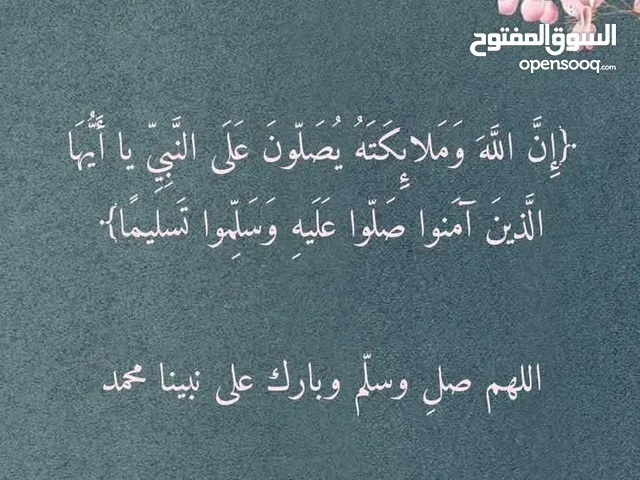 السوق المفتوح
opensooq.com
{إِنَّ اللَّهَ وَمَلائِكَتَهُ يُصَلّونَ عَلَى النَّبِيِّ يا أَيُّهَا
الَّذينَ آمَنوا صَلّوا عَلَيهِ وَسَلِّموا تَسليمًا}
اللهم صلِ وسلّم وبارك على نبينا محمد